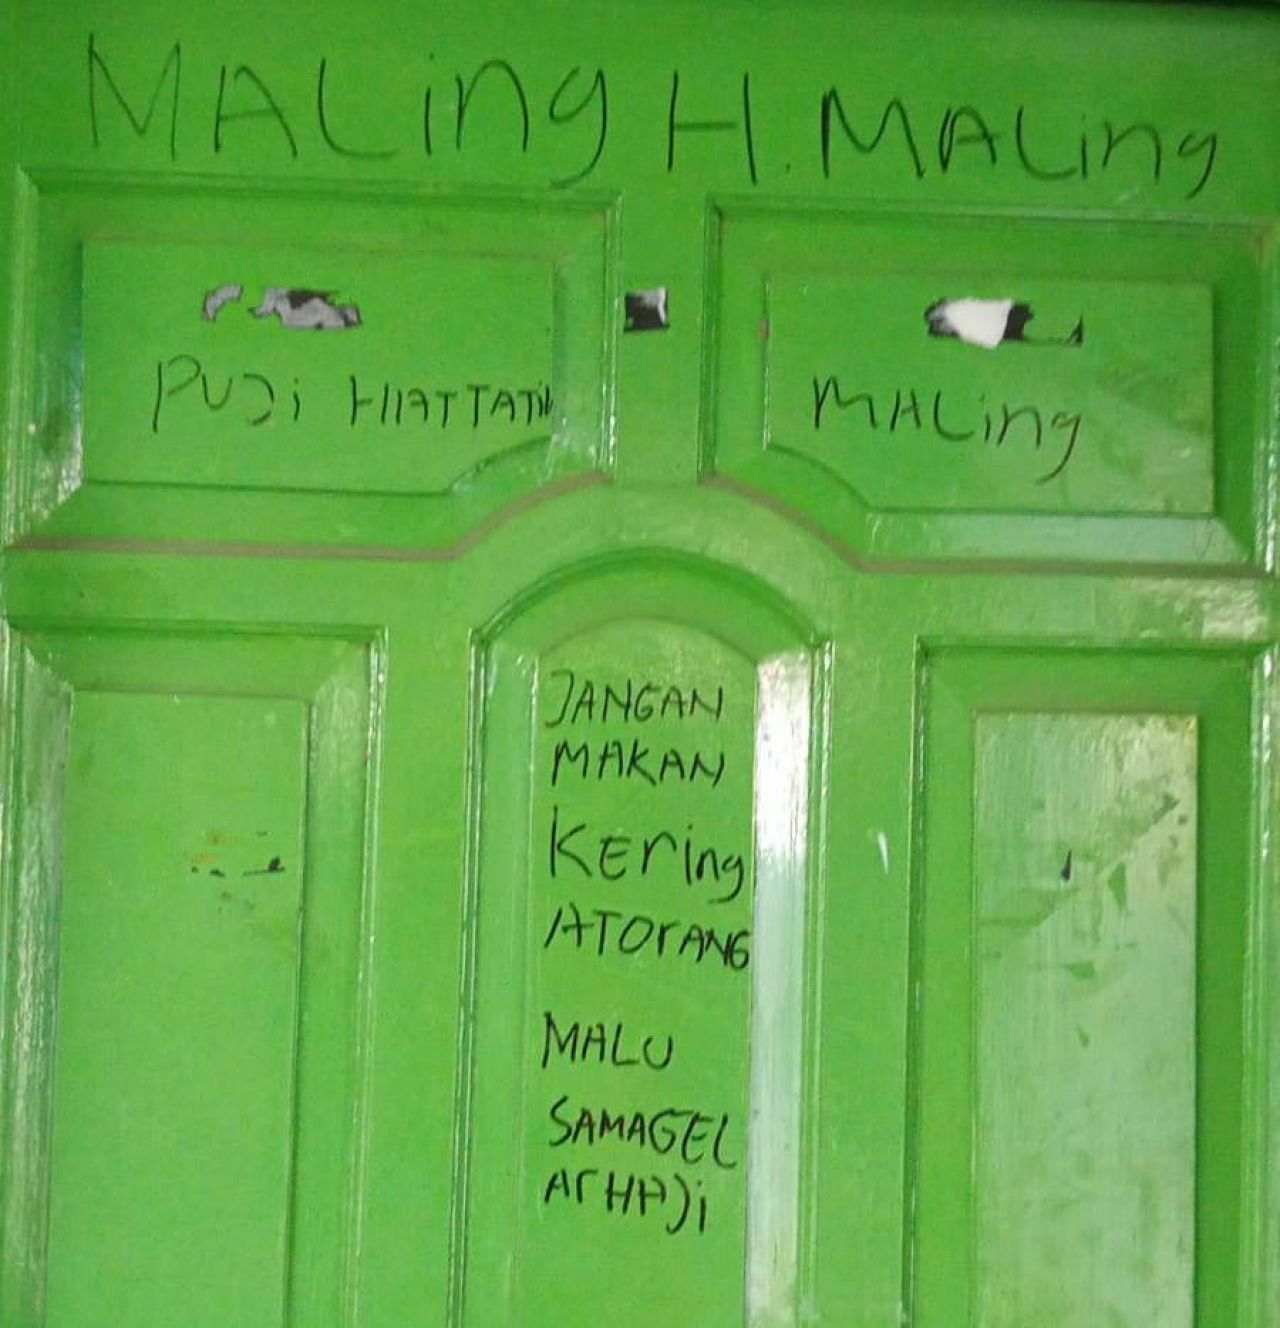 MALing H. MALing
PUJi HIATTATiN
MALing
JANGAN
MAKAN
KEring
ATOrANG
MALU
SAMAGEL
ArHAJi